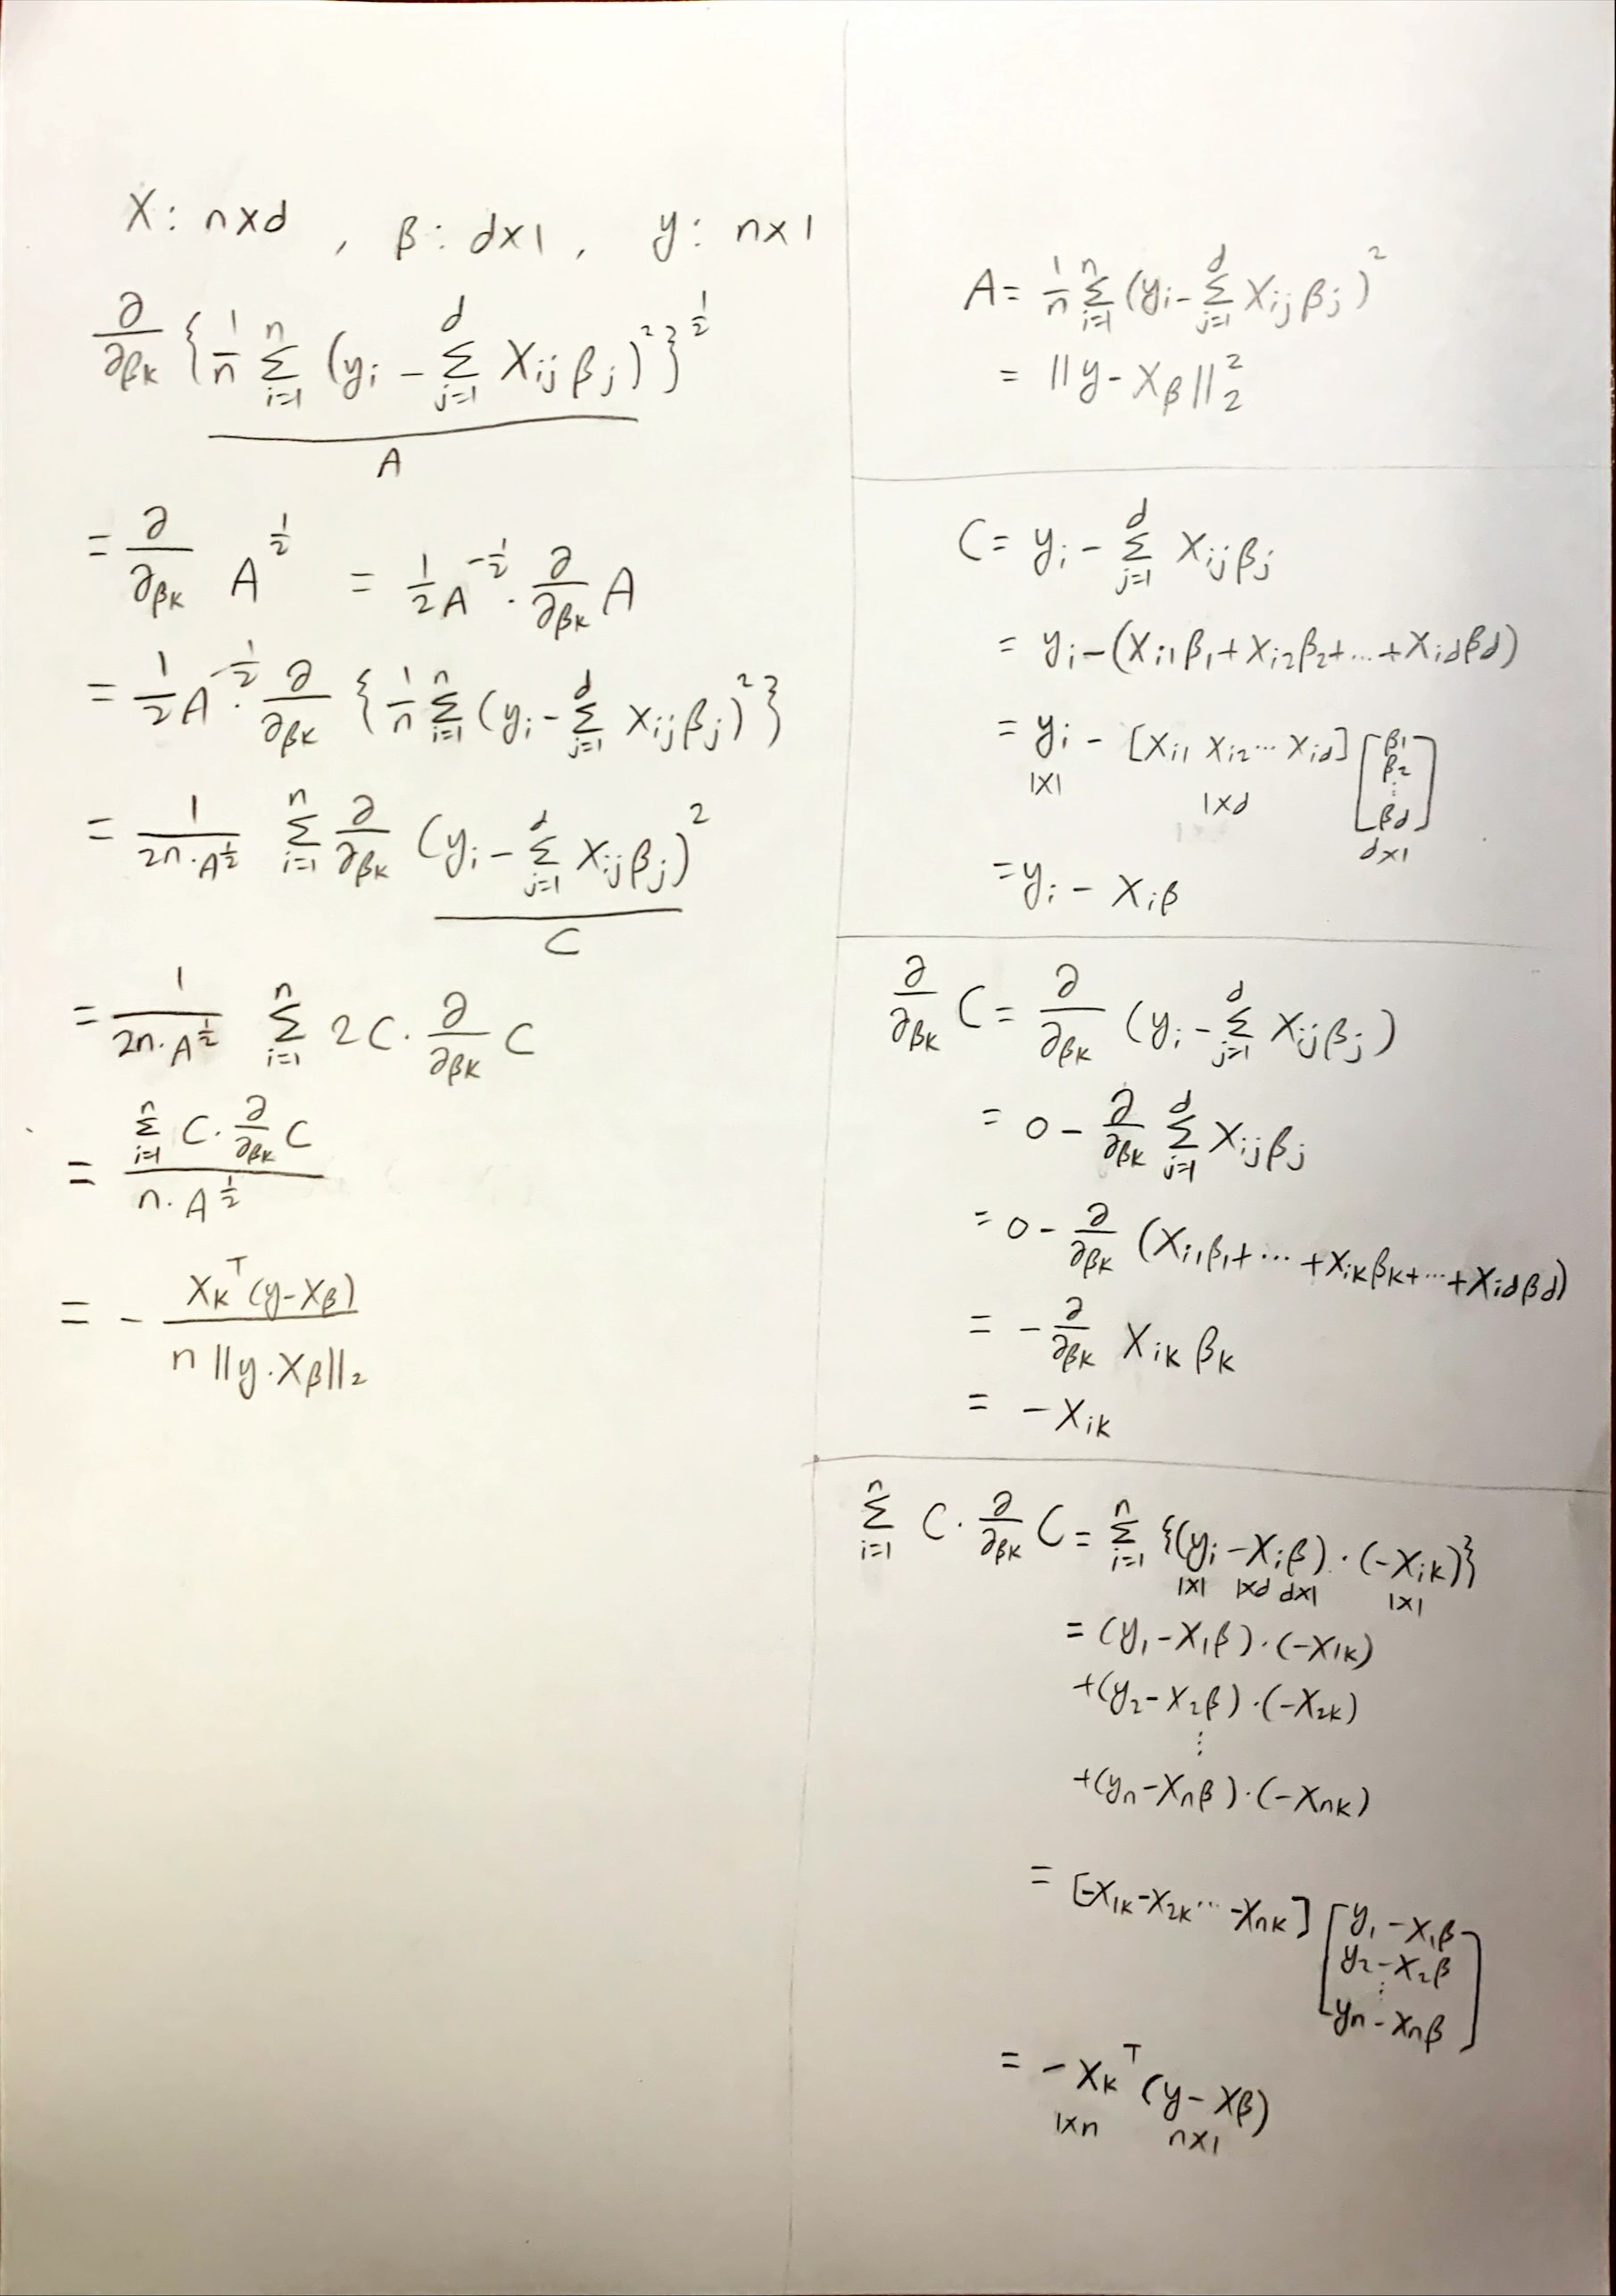 X: n×d , β: d×1, y: n×1
∂/∂βₖ {1/n Σᵢ₌₁ⁿ (yᵢ - Σⱼ₌₁ᵈ Xᵢⱼ βⱼ)²}^½
A
= ∂/∂βₖ A^½ = ½A^-½ · ∂/∂βₖ A
= ½A^-½ · ∂/∂βₖ {1/n Σᵢ₌₁ⁿ (yᵢ - Σⱼ₌₁ᵈ Xᵢⱼ βⱼ)²}
= 1/(2n·A^½) Σᵢ₌₁ⁿ ∂/∂βₖ (yᵢ - Σⱼ₌₁ᵈ Xᵢⱼ βⱼ)²
C
= 1/(2n·A^½) Σᵢ₌₁ⁿ 2C · ∂/∂βₖ C
= (Σᵢ₌₁ⁿ C · ∂/∂βₖ C)/(n·A^½)
= - Xₖᵀ(y-Xβ)/(n ||y·Xβ||₂)
A = 1/n Σᵢ₌₁ⁿ (yᵢ - Σⱼ₌₁ᵈ Xᵢⱼ βⱼ)²
= ||y - Xβ||₂²
C = yᵢ - Σⱼ₌₁ᵈ Xᵢⱼβⱼ
= yᵢ - (Xᵢ₁β₁ + Xᵢ₂β₂ + ... + X_idβ_d)
= yᵢ - [Xᵢ₁ Xᵢ₂ ... X_id] [β₁ β₂ ⋮ β_d]
1×1 1×d d×1
= yᵢ - Xᵢβ
∂/∂βₖ C = ∂/∂βₖ (yᵢ - Σⱼ₌₁ᵈ Xᵢⱼβⱼ)
= 0 - ∂/∂βₖ Σⱼ₌₁ᵈ Xᵢⱼβⱼ
= 0 - ∂/∂βₖ (Xᵢ₁β₁ + ... + Xᵢₖβₖ + ... + X_idβ_d)
= - ∂/∂βₖ Xᵢₖ βₖ
= - Xᵢₖ
Σᵢ₌₁ⁿ C · ∂/∂βₖ C = Σᵢ₌₁ⁿ {(yᵢ - Xᵢβ) · (-Xᵢₖ)}
1×1 1×d d×1 1×1
= (y₁ - X₁β) · (-X₁ₖ)
+ (y₂ - X₂β) · (-X₂ₖ)
⋮
+ (yₙ - Xₙβ) · (-Xₙₖ)
= [-X₁ₖ -X₂ₖ ... -Xₙₖ] [y₁ - X₁β
y₂ - X₂β
⋮
yₙ - Xₙβ]
= - Xₖᵀ (y - Xβ)
1×n n×1